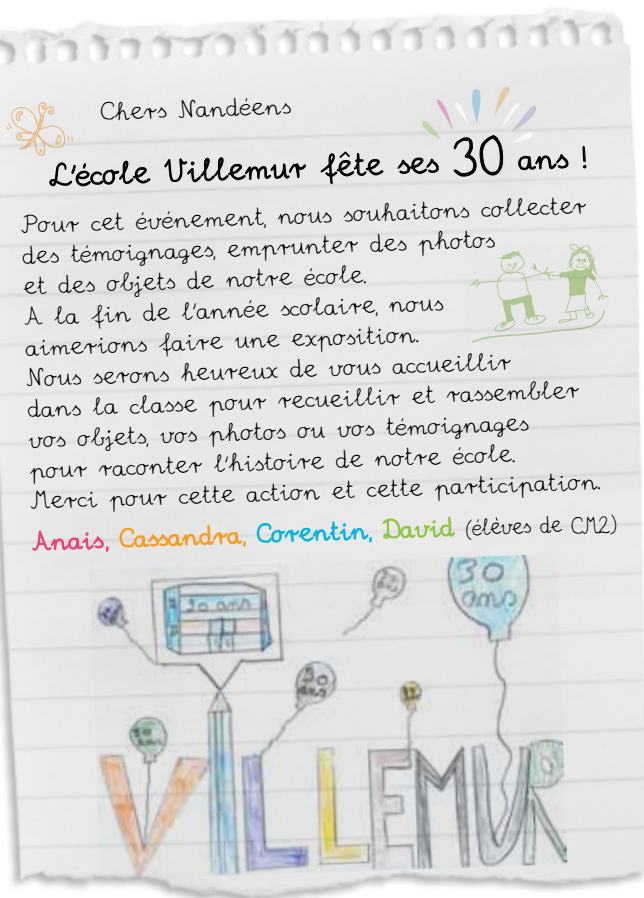 Chers Nandéens
L'école Villemur fête ses 30 ans !
Pour cet événement, nous souhaitons collecter
des témoignages, emprunter des photos
et des objets de notre école.
A la fin de l'année scolaire, nous
aimerions faire une exposition.
Nous serons heureux de vous accueillir
dans la classe pour recueillir et rassembler
vos objets, vos photos ou vos témoignages
pour raconter l'histoire de notre école.
Merci pour cette action et cette participation.
Anais, Cassandra, Corentin, David (élèves de CM2)
30
ans
30 ans
30
ans
30
ans
VILLEMUR